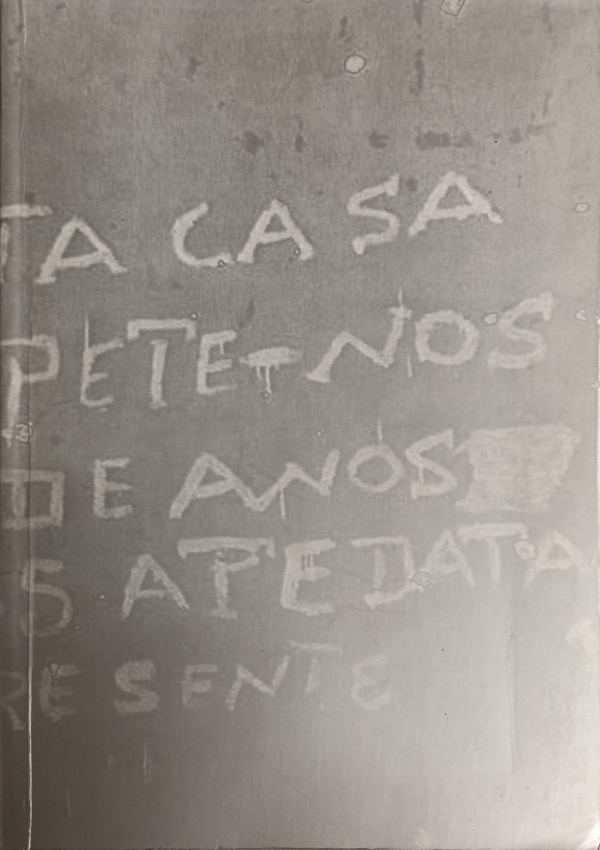 TA CASA
PETE-NOS
DE ANOS
S APEDATA
RESENTE